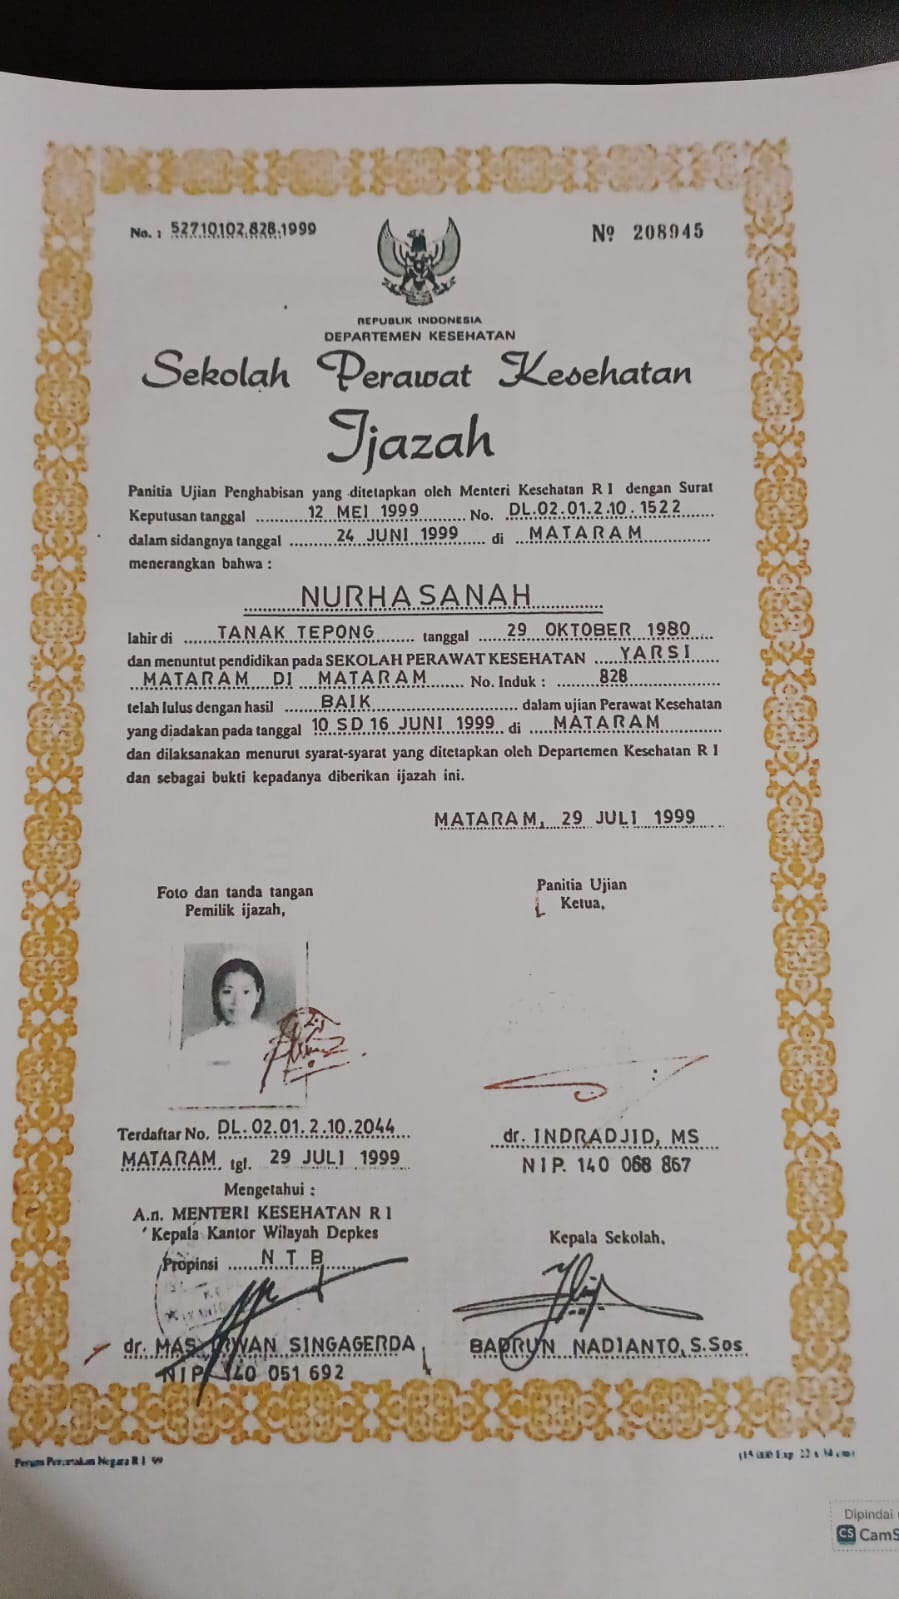 No. : 52710102.828.1999
Nº 208945
REPUBLIK INDONESIA
DEPARTEMEN KESEHATAN
Sekolah Perawat Kesehatan
Ijazah
Panitia Ujian Penghabisan yang ditetapkan oleh Menteri Kesehatan R I dengan Surat
Keputusan tanggal 12 MEI 1999 No. DL.02.01.2.10.1522
dalam sidangnya tanggal 24 JUNI 1999 di MATARAM
menerangkan bahwa :
NURHASANAH
lahir di TANAK TEPONG tanggal 29 OKTOBER 1980
dan menuntut pendidikan pada SEKOLAH PERAWAT KESEHATAN YARSI
MATARAM DI MATARAM No. Induk : 828
telah lulus dengan hasil BAIK dalam ujian Perawat Kesehatan
yang diadakan pada tanggal 10 SD 16 JUNI 1999 di MATARAM
dan dilaksanakan menurut syarat-syarat yang ditetapkan oleh Departemen Kesehatan R I
dan sebagai bukti kepadanya diberikan ijazah ini.
MATARAM, 29 JULI 1999
Foto dan tanda tangan
Pemilik ijazah,
Panitia Ujian
Ketua,
Terdaftar No. DL.02.01.2.10.2044
MATARAM, tgl. 29 JULI 1999
dr. INDRADJID, MS
NIP. 140 068 867
Mengetahui :
A.n. MENTERI KESEHATAN R I
Kepala Kantor Wilayah Depkes
Propinsi N T B
dr. MAS IRWAN SINGAGERDA
NIP. 140 051 692
Kepala Sekolah,
BADRUN NADIANTO, S.Sos
Perum Percetakan Negara R I 99
Dipindai
CS CamS